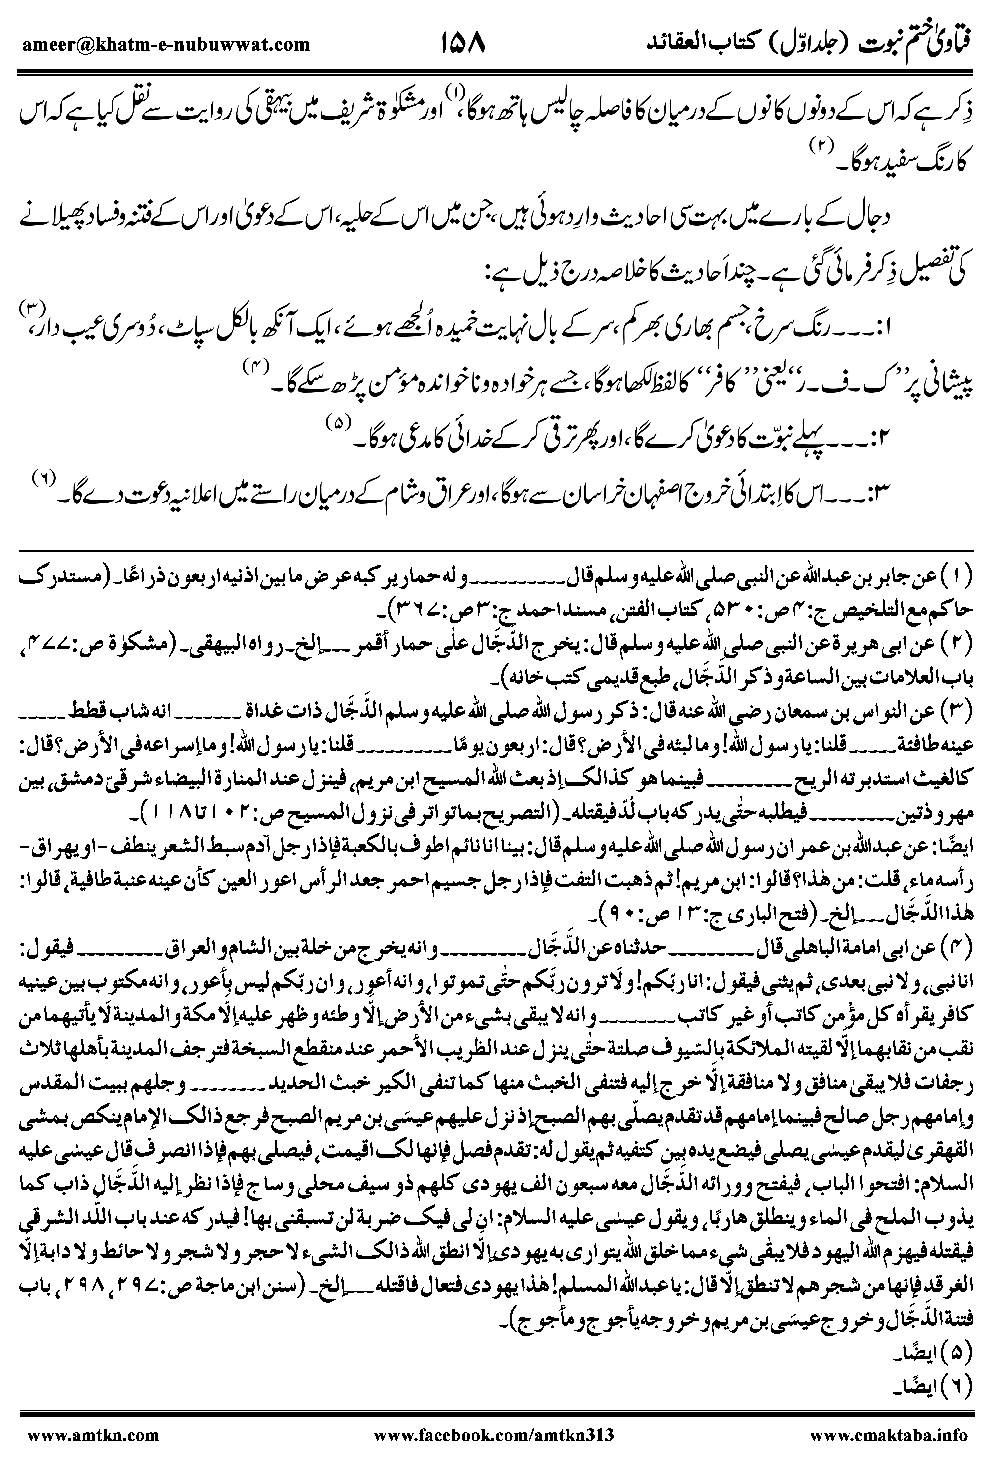 ameer@khatm-e-nubuwwat.com ۱۵۸ فتاویٰ ختم نبوت (جلد اوّل) کتاب العقائد
ذِکر ہے کہ اس کے دونوں کانوں کے درمیان کا فاصلہ چالیس ہاتھ ہوگا،(۱) اور مشکوٰۃ شریف میں بیہقی کی روایت سے نقل کیا ہے کہ اس
کا رنگ سفید ہوگا۔(۲)
دجال کے بارے میں بہت سی احادیث وارد ہوئی ہیں، جن میں اس کے حلیہ، اس کے دعویٰ اور اس کے فتنہ و فساد پھیلانے
کی تفصیل ذِکر فرمائی گئی ہے۔ چند اَحادیث کا خلاصہ درج ذیل ہے:
۱:۔۔۔ رنگ سرخ، جسم بھاری بھرکم، سر کے بال نہایت خمیدہ اُلجھے ہوئے، ایک آنکھ بالکل سپاٹ، دُوسری عیب دار،(۳)
پیشانی پر ’’ک۔ف۔ر‘‘ یعنی ’’کافر‘‘ کا لفظ لکھا ہوگا، جسے ہر خوادہ و ناخواندہ مؤمن پڑھ سکے گا۔(۴)
۲:۔۔۔ پہلے نبوّت کا دعویٰ کرے گا، اور پھر ترقی کر کے خدائی کا مدعی ہوگا۔(۵)
۳:۔۔۔ اس کا اِبتدائی خروج اصفہان خراسان سے ہوگا، اور عراق و شام کے درمیان راستے میں اعلانیہ دعوت دے گا۔(۶)
(۱) عن جابر بن عبدالله عن النبی صلی الله علیه وسلم قال۔۔۔۔۔۔۔۔۔۔وله حمار یرکبه عرض ما بین اذنیه اربعون ذراعًا۔ (مستدرک
حاکم مع التلخیص ج:۴ ص:۵۳۰، کتاب الفتن، مسند احمد ج:۳ ص:۳۶۷)۔
(۲) عن ابی هریرة عن النبی صلی الله علیه وسلم قال: یخرج الدَّجَّال علٰی حمار أقمر ۔۔۔إلخ۔ رواه البیهقی۔ (مشکوٰة ص:۴۷۷،
باب العلامات بین الساعة و ذکر الدَّجَّال، طبع قدیمی کتب خانه)۔
(۳) عن النواس بن سمعان رضی الله عنه قال: ذکر رسول الله صلی الله علیه وسلم الدَّجَّال ذات غداة ۔۔۔۔۔۔۔ انه شاب قطط ۔۔۔۔۔
عینه طافئة۔۔۔۔۔ قلنا: یا رسول الله! وما لبثه فی الأرض؟ قال: اربعون یومًا۔۔۔۔۔۔۔۔۔۔ قلنا: یا رسول الله! وما إسراعه فی الأرض؟ قال:
کالغیث استدبرته الریح۔۔۔۔۔۔۔۔۔فبینما هو کذالک إذ بعث الله المسیح ابن مریم، فینزل عند المنارة البیضاء شرقیّ دمشق، بین
مهروذتین۔۔۔۔۔۔۔۔۔فیطلبه حتّٰی یدرکه باب لُدّ فیقتله۔ (التصریح بما تواتر فی نزول المسیح ص:۱۰۲ تا ۱۱۸)۔
ایضًا: عن عبدالله بن عمر ان رسول الله صلی الله علیه وسلم قال: بینا انا نائم اطوف بالکعبة فإذا رجل آدم سبط الشعر ینطف - او یهراق -
رأسه ماء، قلت: من هٰذا؟ قالوا: ابن مریم! ثم ذهبت التفت فإذا رجل جسیم احمر جعد الرأس اعور العین کأن عینه عنبة طافیة، قالوا:
هٰذا الدَّجَّال ۔۔۔إلخ۔ (فتح الباری ج:۱۳ ص:۹۰)۔
(۴) عن ابی امامة الباهلی قال ۔۔۔۔۔۔۔۔۔ حدثناه عن الدَّجَّال ۔۔۔۔۔۔۔۔۔وانه یخرج من خلة بین الشام والعراق ۔۔۔۔۔۔۔۔۔ فیقول:
انا نبی، ولا نبی بعدی، ثم یثنی فیقول: انا ربّکم! ولَا ترون ربّکم حتّٰی تموتوا، وانه أعور، وان ربّکم لیس بأعور، وانه مکتوب بین عینیه
کافر یقرأه کل مؤمن کاتب أو غیر کاتب۔۔۔۔۔۔۔۔وانه لَا یبقی بشیء من الأرض إلَّا وطئه وظهر علیه إلَّا مکة والمدینة لَا یأتیهما من
نقب من نقابهما إلَّا لقیته الملائکة بالسّیوف صلتة حتّٰی ینزل عند الظریب الأحمر عند منقطع السبخة فترجف المدینة بأهلها ثلاث
رجفات فلا یبقٰی منافق ولَا منافقة إلَّا خرج إلیه فتنفی الخبث منها کما تنفی الکیر خبث الحدید۔۔۔۔۔۔۔۔ وجلهم ببیت المقدس
وإمامهم رجل صالح فبینما إمامهم قد تقدم یصلّی بهم الصبح إذ نزل علیهم عیسَی بن مریم الصبح فرجع ذالک الإمام ینکص یمشی
القهقری لیقدم عیسٰی یصلی فیضع یده بین کتفیه ثم یقول له: تقدم فصل فإنها لک اقیمت، فیصلی بهم فإذا انصرف قال عیسٰی علیه
السلام: افتحوا الباب، فیفتح وورائه الدَّجَّال معه سبعون الف یهودی کلهم ذو سیف محلی وساج فإذا نظر إلیه الدَّجَّال ذاب کما
یذوب الملح فی الماء وینطلق هاربًا، ویقول عیسٰی علیه السلام: ان لی فیک ضربة لن تسبقنی بها! فیدرکه عند باب اللّد الشرقی
فیقتله فیهزم الله الیهود فلا یبقٰی شیء مما خلق الله یتواری به یهودی إلَّا انطق الله ذالک الشیء لَا حجر ولَا شجر ولَا حائط ولَا دابة إلَّا
الغرقد فإنها من شجرهم لَا تنطق إلَّا قال: یا عبدالله المسلم! هٰذا یهودی فتعال فاقتله ۔۔۔إلخ۔ (سنن ابن ماجة ص:۲۹۷، ۲۹۸، باب
فتنة الدَّجَّال وخروج عیسَی بن مریم وخروجه یأجوج ومأجوج)۔
(۵) ایضًا۔
(۶) ایضًا۔
www.amtkn.com www.facebook.com/amtkn313 www.cmaktaba.info